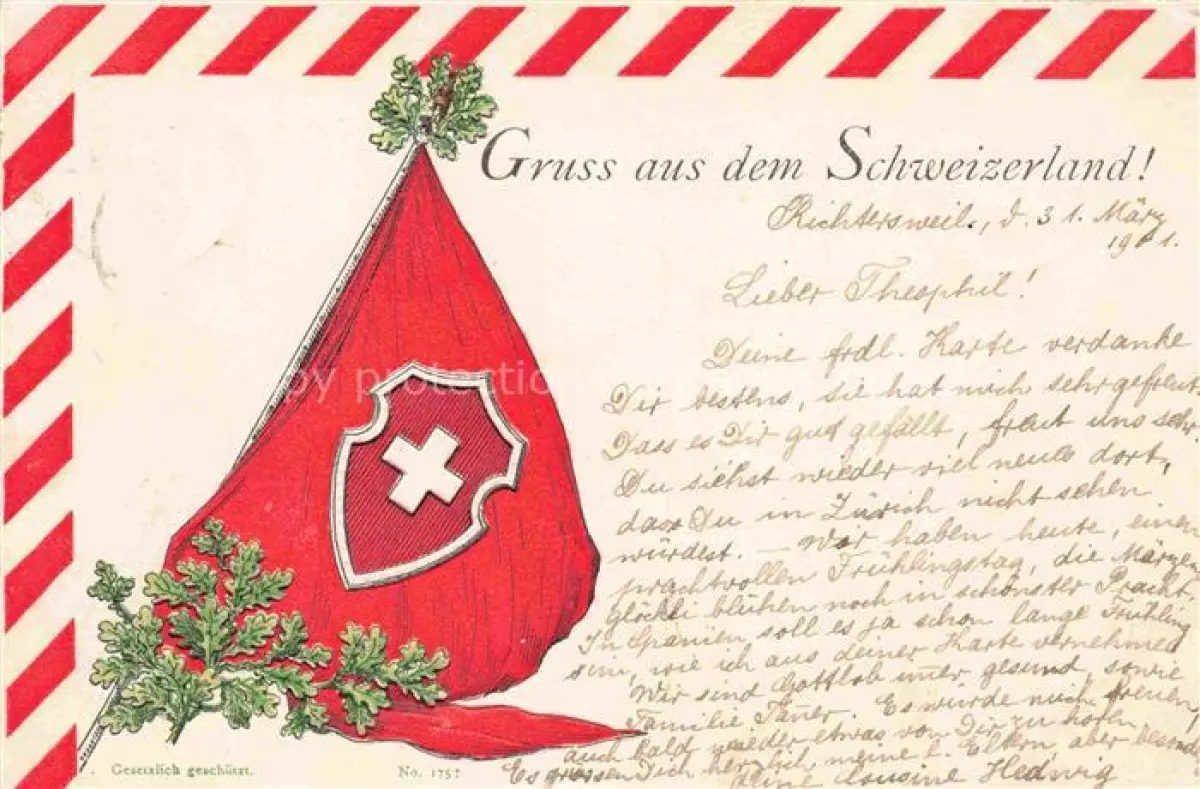 Gruss aus dem Schweizerland!
Richtersweil, d. 31. März
1901.
Lieber Theophil!
Deine frdl. Karte verdanke
Dir bestens, sie hat mich sehr gefreut
Dass es Dir gut gefällt, freut uns sehr
Du siehst wieder viel neues dort,
dass Du in Zürich nicht sehen
würdest. – Wir haben heute, einen
prachtvollen Frühlingstag, die Märzen
glöckli blühen noch in schönster Pracht.
In Spanien soll es ja schon lange Frühling
sein, wie ich aus deiner Karte vernehmed
Wir sind Gottlob immer gesund, sowie
Familie. Es würde mich freuen,
auch bald wieder etwas von Dir zu hören
Es grüssen Dich herzlich meine l. Eltern aber besond
Deine Cousine Hedwig
Gesetzlich geschützt.
No. 175
by protection